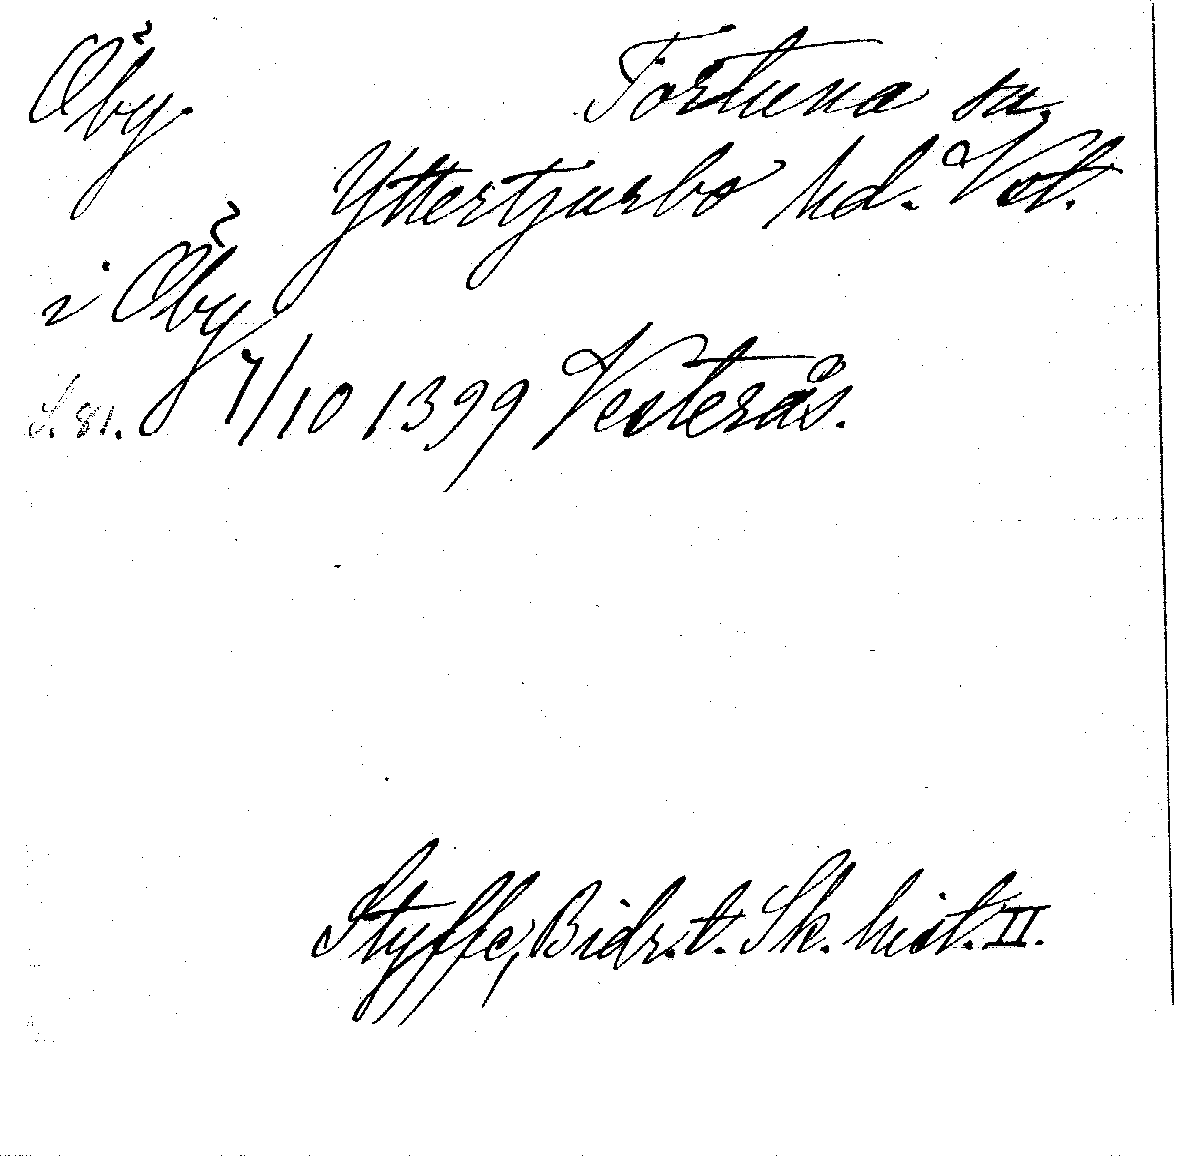 Öby.
Tortuna sn.
Yttertjurbo hd. Vst.
i Öby
S. 81. 7/10 1399 Vesterås.
Styffe, Bidr. t. Sk. hist. II.